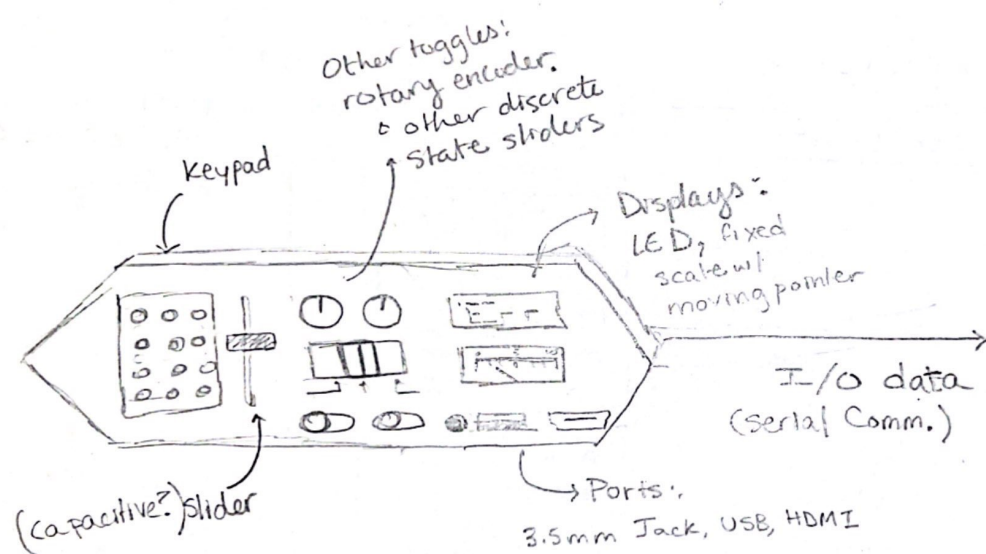 Other toggles:
rotary encoder.
& other discrete
state sliders
Keypad
Displays:
LED, fixed
scale w/
moving pointer
I/O data
(serial Comm.)
(capacitive?) slider
Ports:
3.5mm Jack, USB, HDMI